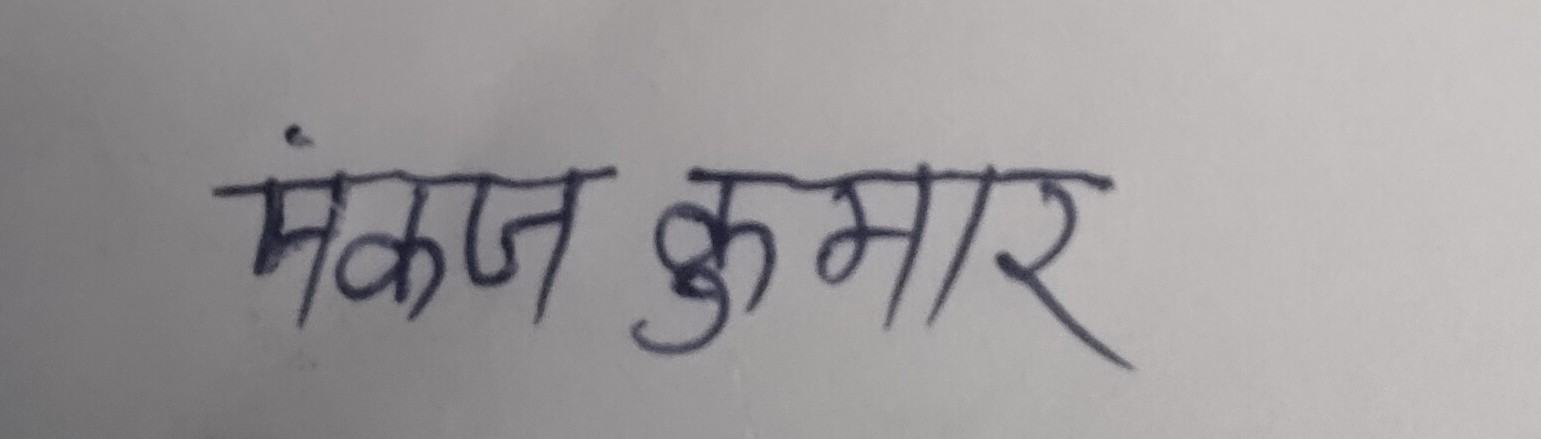 पंकज कुमार